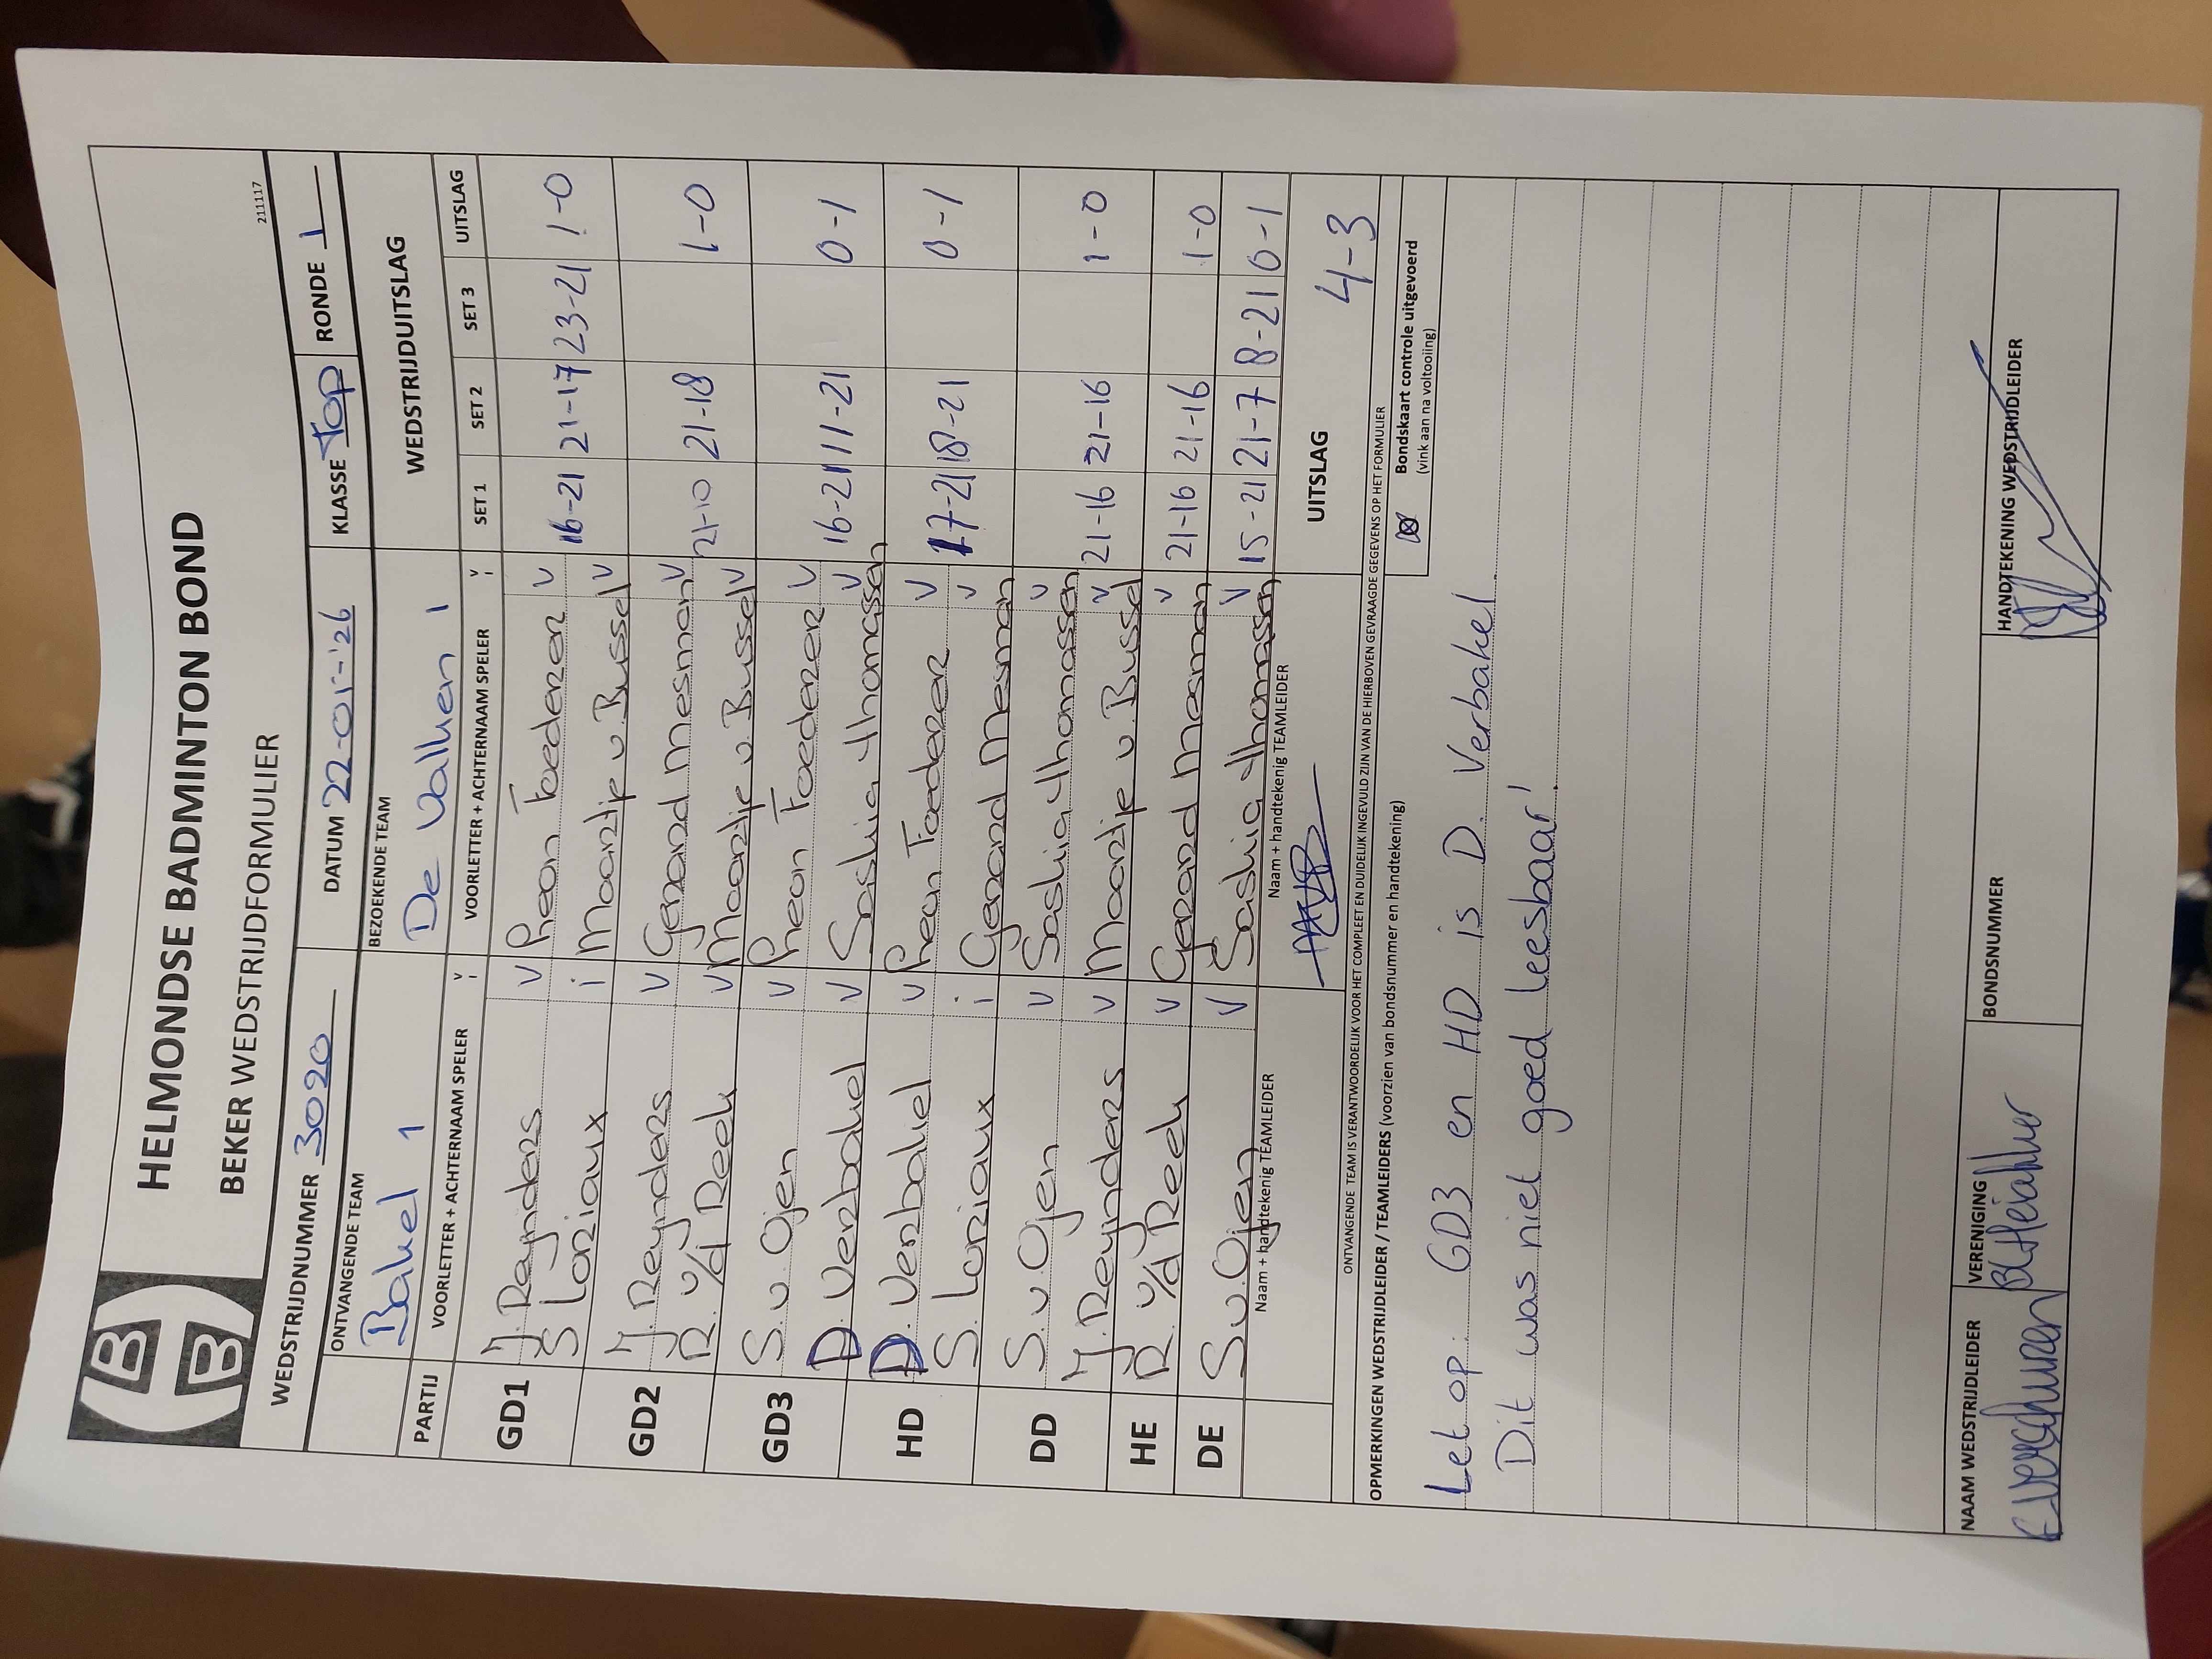 HELMONDSE BADMINTON BOND
BEKER WEDSTRIJDFORMULIER
211117
WEDSTRIJDNUMMER 3020 DATUM 22-01-'26 KLASSE TOP RONDE 1
ONTVANGENDE TEAM BEZOEKENDE TEAM WEDSTRIJDUITSLAG
Bakel 1 De Valken 1
PARTIJ VOORLETTER + ACHTERNAAM SPELER V I VOORLETTER + ACHTERNAAM SPELER V I SET 1 SET 2 SET 3 UITSLAG
GD1 Y. Reynders V Rean Foederer V 16-21 21-17 23-21 1-0
S Loriaux i Maartje v. Bussel V
GD2 Y. Reynders V Gerard Mesman V 21-10 21-18 1-0
R. v/d Reek V Maartje v. Bussel V
GD3 S. v. Ojen V Rean Foederer V 16-21 11-21 0-1
D. Verbakel V Saskia Thomassen V
HD D. Verbakel V Rean Foederer V 17-21 18-21 0-1
S. Loriaux i Gerard Mesman V
DD S. v. Ojen V Saskia Thomassen V 21-16 21-16 1-0
Y. Reynders V Maartje v. Bussel V
HE R. v/d Reek V Gerard Mesman V 21-16 21-16 1-0
DE S. v. Ojen V Saskia Thomassen V 15-21 21-7 8-21 0-1
Naam + handtekenig TEAMLEIDER Naam + handtekenig TEAMLEIDER UITSLAG 4-3
ONTVANGENDE TEAM IS VERANTWOORDELIJK VOOR HET COMPLEET EN DUIDELIJK INGEVULD ZIJN VAN DE HIERBOVEN GEVRAAGDE GEGEVENS OP HET FORMULIER
OPMERKINGEN WEDSTRIJDLEIDER / TEAMLEIDERS (voorzien van bondsnummer en handtekening) Bondskaart controle uitgevoerd
(vink aan na voltooiing)
Let op: GD3 en HD is D. Verbakel.
Dit was niet goed leesbaar!
NAAM WEDSTRIJDLEIDER VERENIGING BONDSNUMMER HANDTEKENING WEDSTRIJDLEIDER